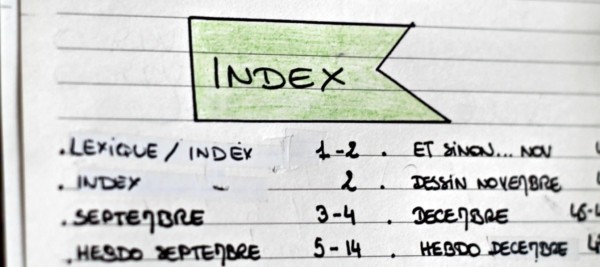 INDEX
. LEXIQUE / INDEX 1-2 . ET SINON... NOV
. INDEX 2 . DESSIN NOVEMBRE
. SEPTEMBRE 3-4 . DECEMBRE
. HEBDO SEPTEMBRE 5-14 . HEBDO DECEMBRE